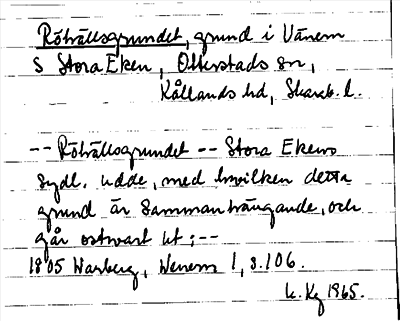 Röhällsgrundet, grund i Vänern
S Stora Eken, Otterstads sn,
Kållands hd, Skarab. l.
-- Röhällsgrundet -- Stora Ekens
sydl. udde, med hvilken detta
grund är sammanhängande, och
går ostwart ut; --
1805 Warberg, Wenern 1, s. 106.
k. Kg 1965.